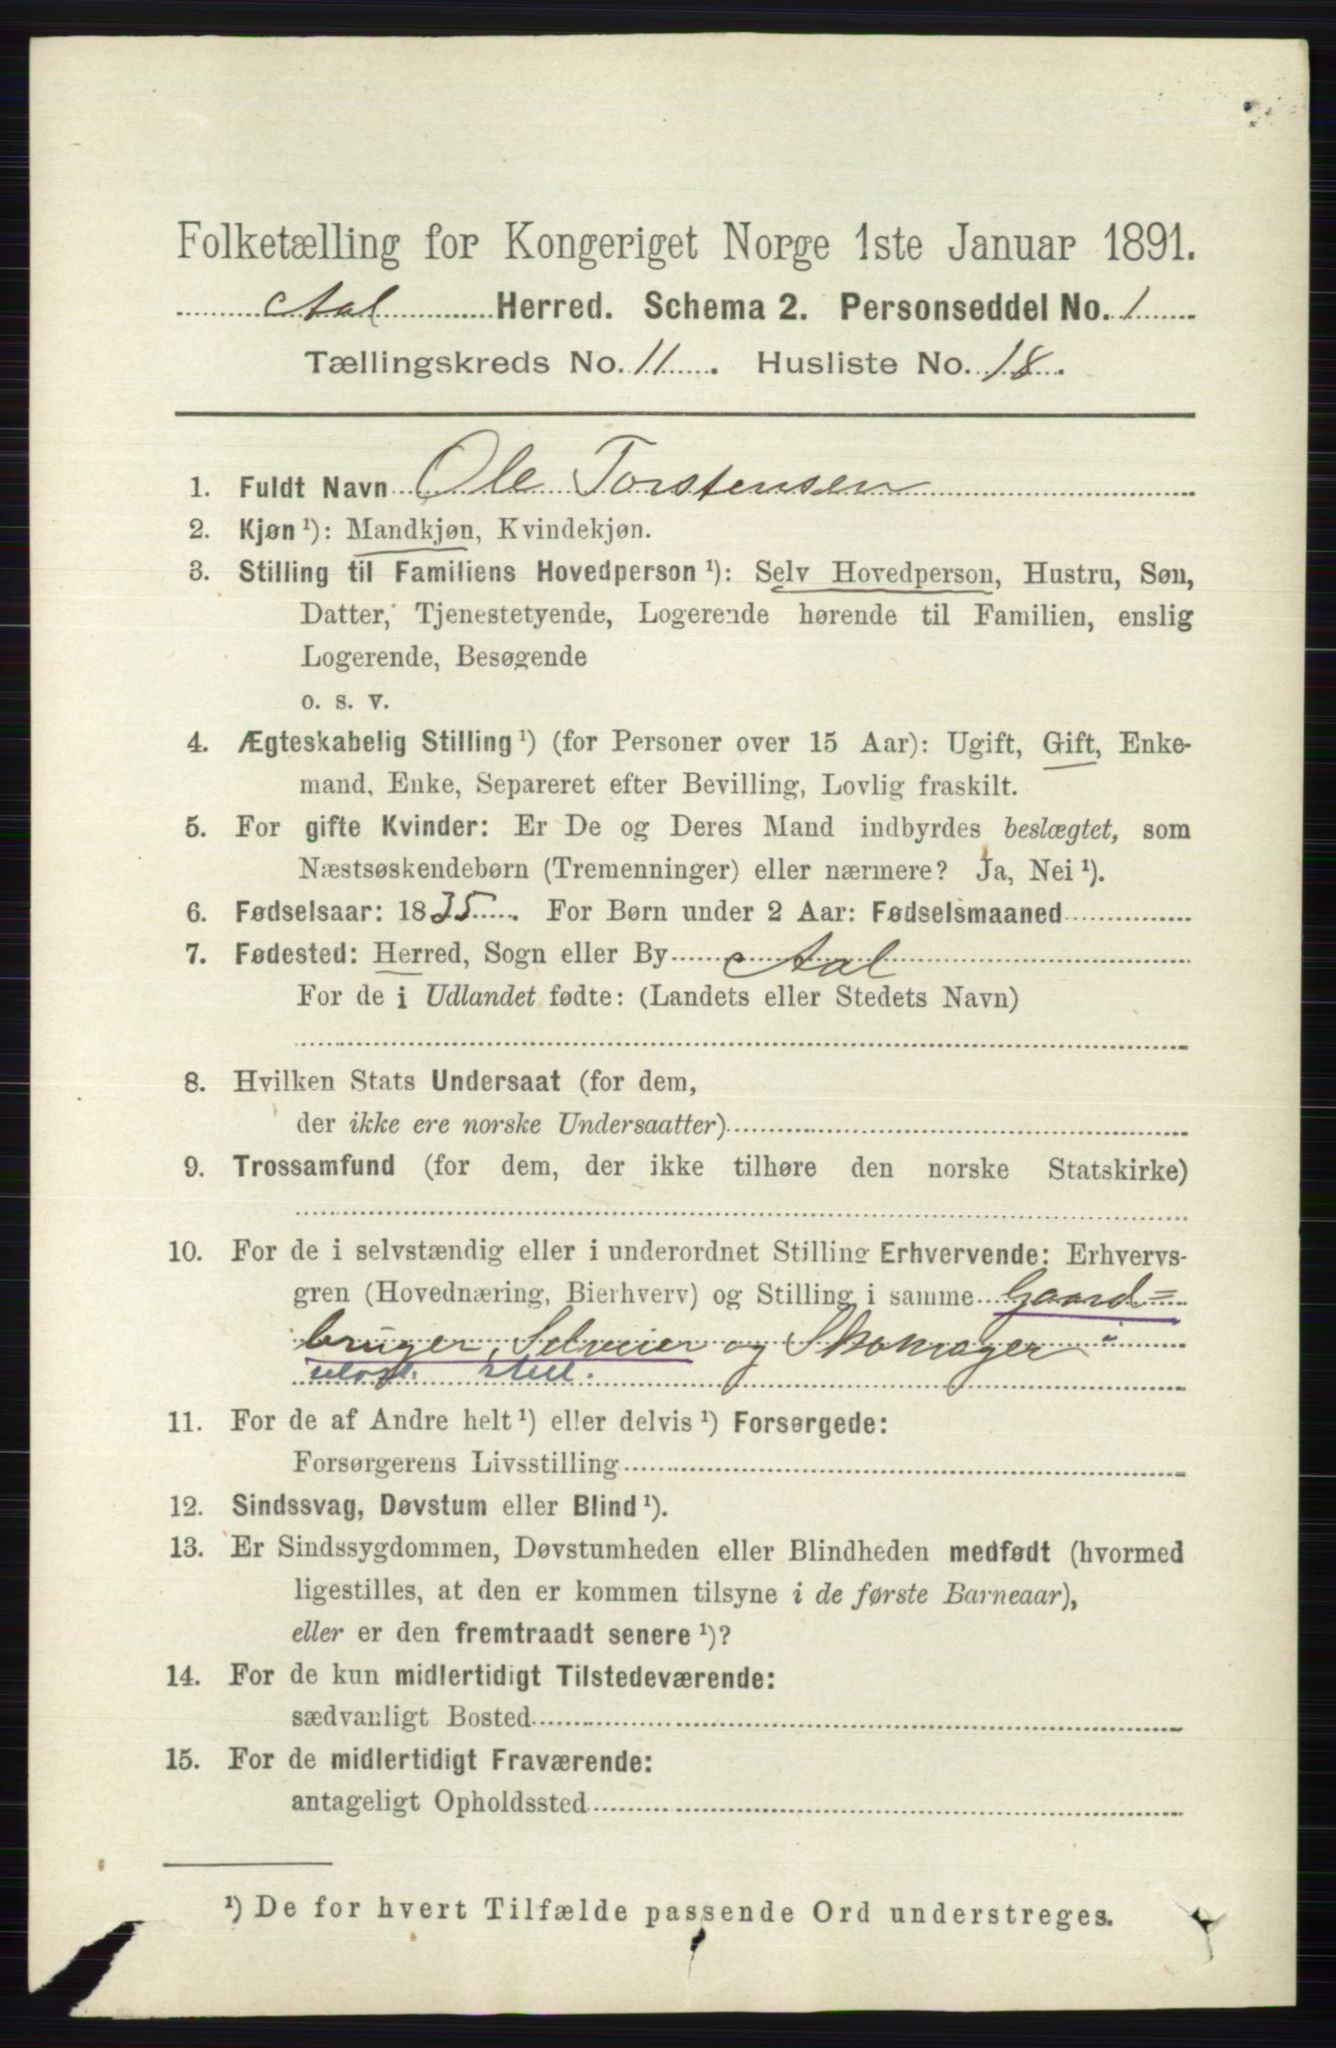 Folketælling for Kongeriget Norge 1ste Januar 1891.
Aal Herred. Schema 2. Personseddel No. 1
Tællingskreds No. 11. Husliste No. 18.
1. Fuldt Navn Ole Torstensen
2. Kjøn ¹): Mandkjøn, Kvindekjøn.
3. Stilling til Familiens Hovedperson ¹): Selv Hovedperson, Hustru, Søn,
Datter, Tjenestetyende, Logerende hørende til Familien, enslig
Logerende, Besøgende
o. s. v.
4. Ægteskabelig Stilling ¹) (for Personer over 15 Aar): Ugift, Gift, Enke-
mand, Enke, Separeret efter Bevilling, Lovlig fraskilt.
5. For gifte Kvinder: Er De og Deres Mand indbyrdes beslægtet, som
Næstsøskendebørn (Tremenninger) eller nærmere? Ja, Nei ¹).
6. Fødselsaar: 1835. For Børn under 2 Aar: Fødselsmaaned
7. Fødested: Herred, Sogn eller By Aal
For de i Udlandet fødte: (Landets eller Stedets Navn)
8. Hvilken Stats Undersaat (for dem,
der ikke ere norske Undersaatter)
9. Trossamfund (for dem, der ikke tilhøre den norske Statskirke)
10. For de i selvstændig eller i underordnet Stilling Erhvervende: Erhvervs-
gren (Hovednæring, Bierhverv) og Stilling i samme Gaard=
bruger, Selveier og Skomager i
stil.
11. For de af Andre helt ¹) eller delvis ¹) Forsørgede:
Forsørgerens Livsstilling
12. Sindssvag, Døvstum eller Blind ¹).
13. Er Sindssygdommen, Døvstumheden eller Blindheden medfødt (hvormed
ligestilles, at den er kommen tilsyne i de første Barneaar),
eller er den fremtraadt senere ¹)?
14. For de kun midlertidigt Tilstedeværende:
sædvanligt Bosted
15. For de midlertidigt Fraværende:
antageligt Opholdssted
¹) De for hvert Tilfælde passende Ord understreges.